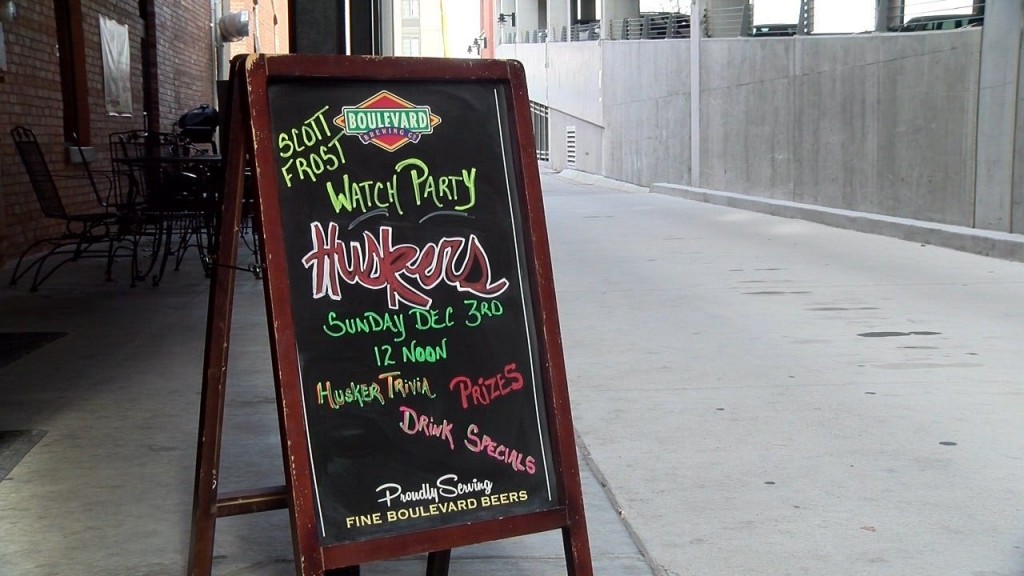 BOULEVARD
BREWING CO
SCOTT
FROST
WATCH PARTY
HUSKERS
SUNDAY DEC 3RD
12 NOON
HUSKER TRIVIA PRIZES
DRINK SPECIALS
Proudly Serving
FINE BOULEVARD BEERS